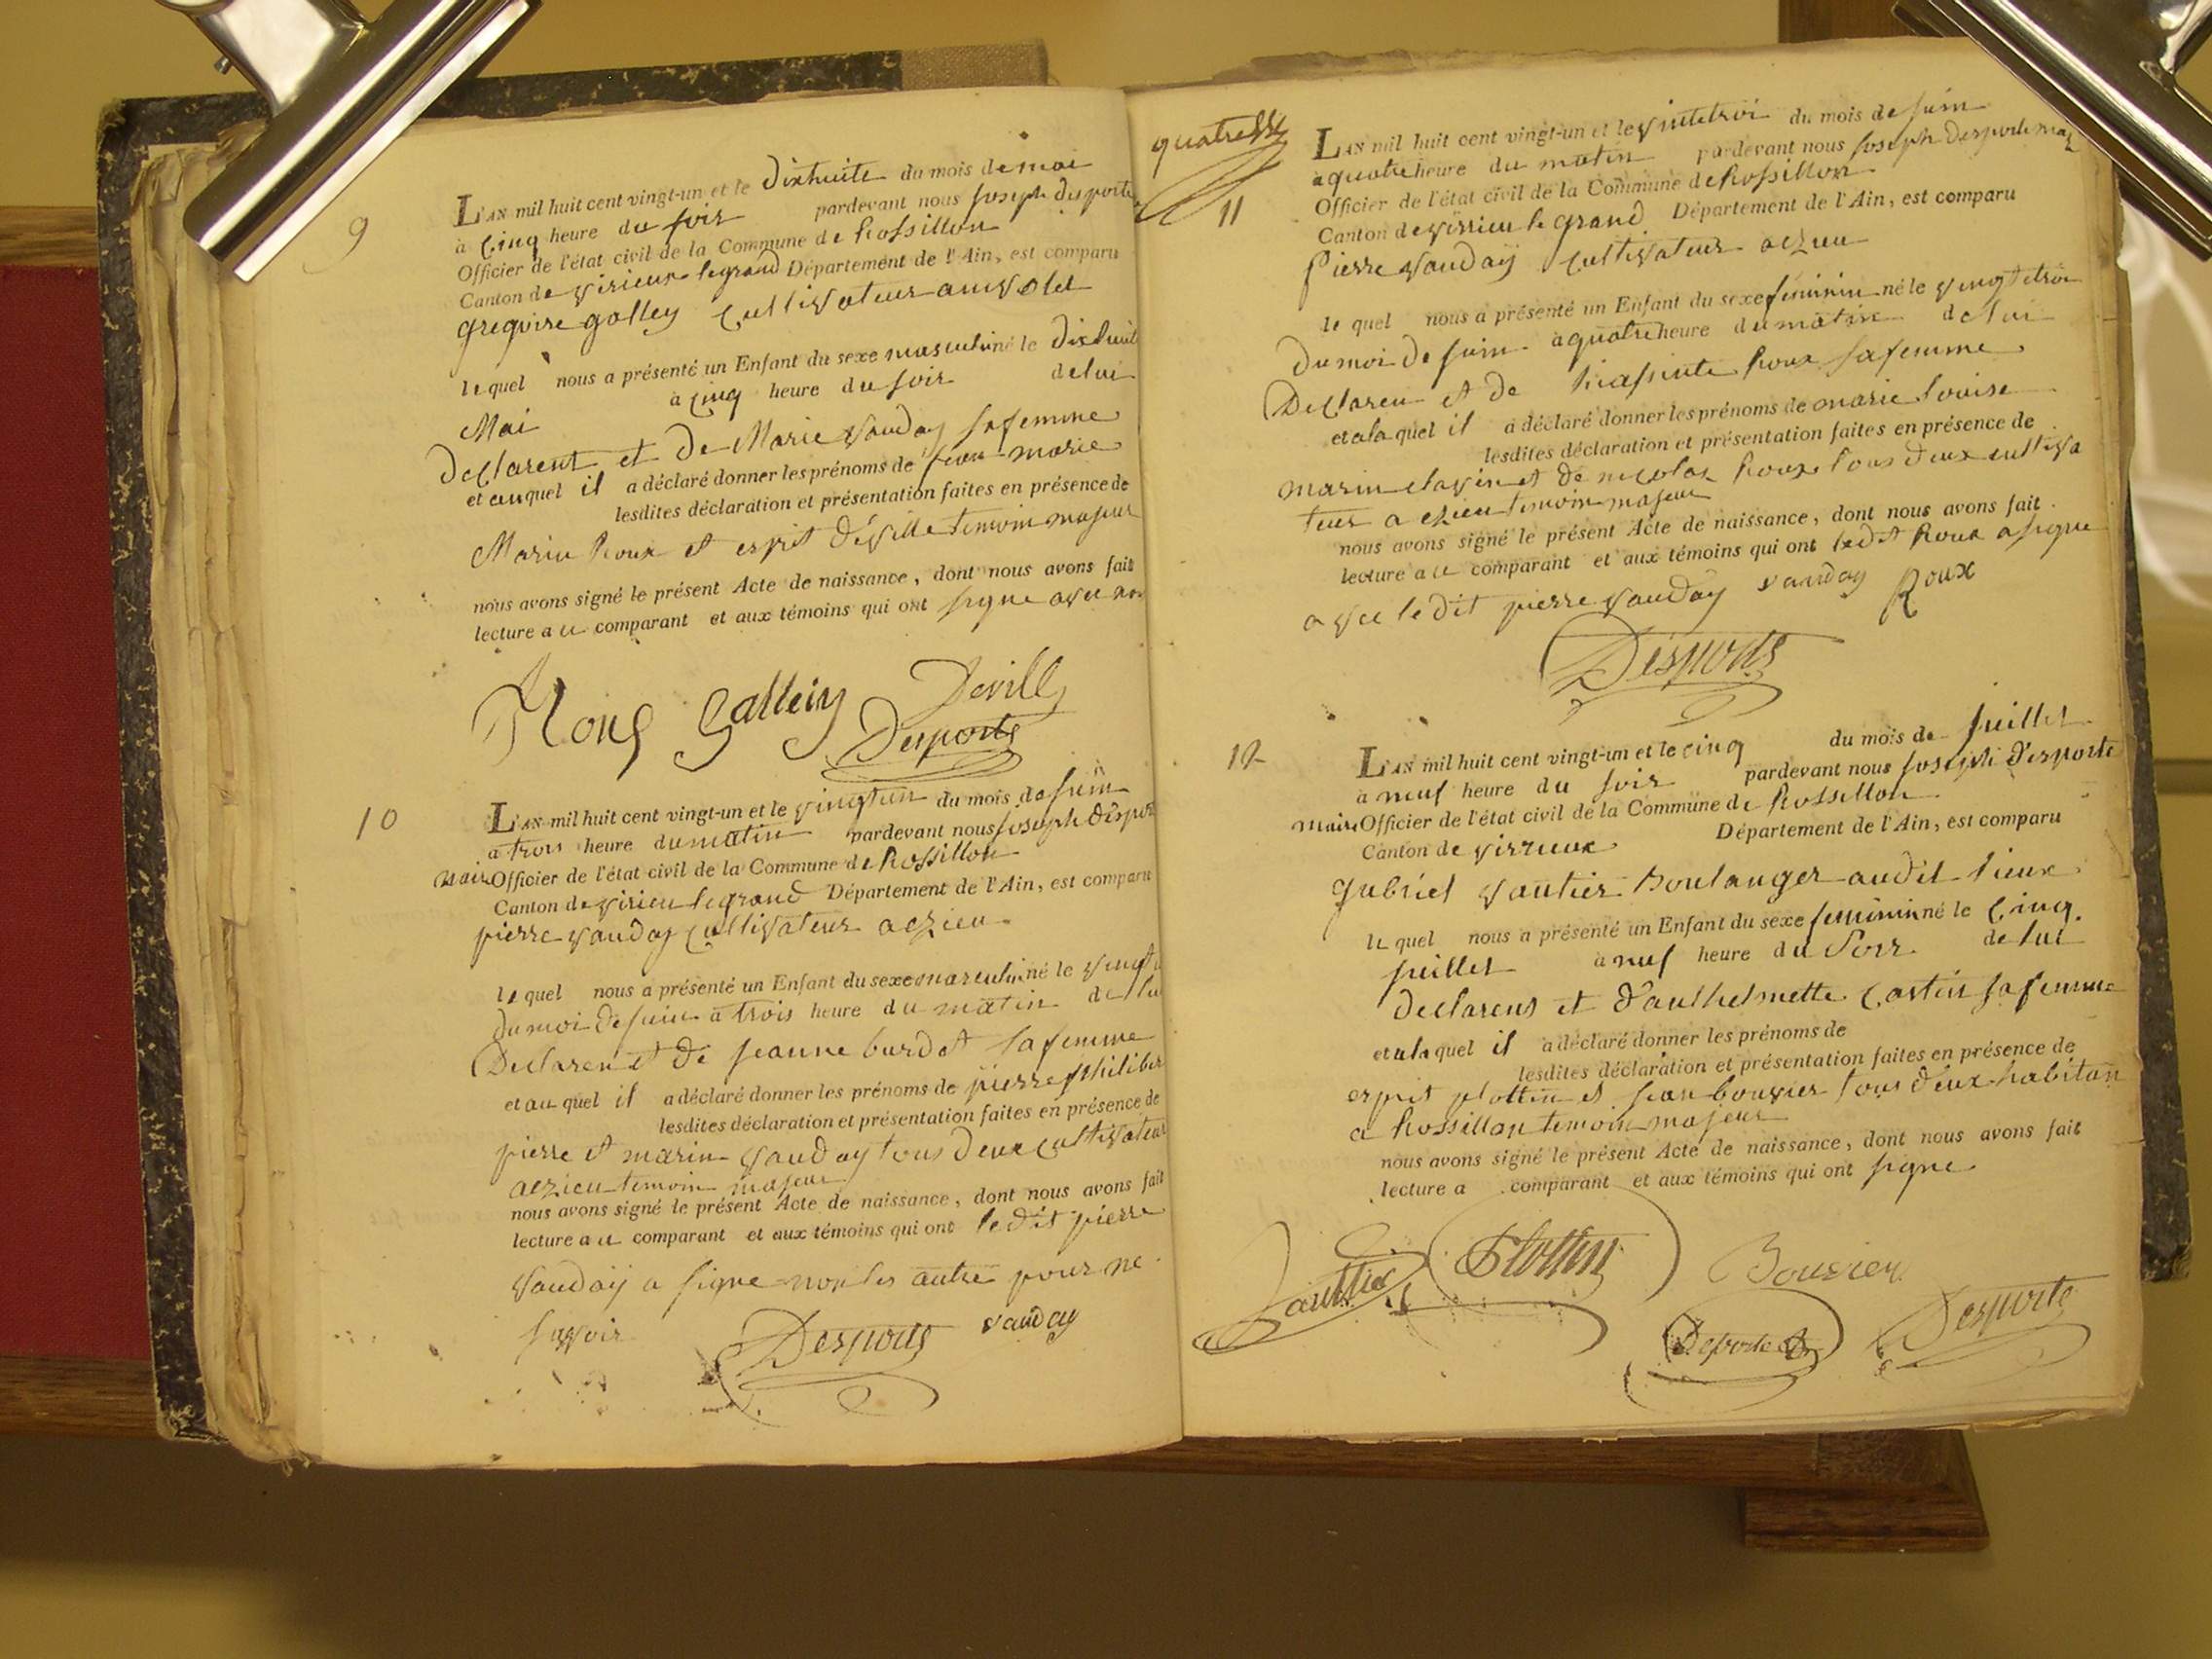 9
L'AN mil huit cent vingt-un et le dixhuite du mois de mai
à cinq heure du soir pardevant nous joseph desporte
Officier de l'état civil de la Commune de Rossillon
Canton de virieux legrand Département de l'Ain, est comparu
gregoire galley cultivateur au volet
le quel nous a présenté un Enfant du sexe masculin né le dixhuit
Mai à cinq heure du soir de lui
declarent et de Marie vauday sa femme
et au quel il a déclaré donner les prénoms de jean marie
lesdites déclaration et présentation faites en présence de
Marin Roux et esprit déville temoin majeur
nous avons signé le présent Acte de naissance, dont nous avons fait
lecture a u comparant et aux témoins qui ont signe avec nou
Gallein Deville
Desporte
10
L'AN mil huit cent vingt-un et le vingtun du mois de juin
a trois heure du matin pardevant nous joseph desport
maire Officier de l'état civil de la Commune de Rossillon
Canton de virieu legrand Département de l'Ain, est comparu
pierre vauday cultivateur a ezieu
le quel nous a présenté un Enfant du sexe masculin né le vingt u
du moi de juin a trois heure du matin de lui
Declaren et de jeanne burdet sa femme
et au quel il a déclaré donner les prénoms de pierre philiber
lesdites déclaration et présentation faites en présence de
pierre et marin vauday tous deux cultivateur
a ezieu temoin majeur
nous avons signé le présent Acte de naissance, dont nous avons fait
lecture a u comparant et aux témoins qui ont ledit pierre
vauday a signe non les autre pour ne
savoir Desporte vauday
quatre
11
L'AN mil huit cent vingt-un et le vintetroi du mois de juin
a quatre heure du matin pardevant nous joseph desporte mai
Officier de l'état civil de la Commune de Rossillon
Canton de virrieu le grand Département de l'Ain, est comparu
Pierre vauday cultivateur a ezieu
le quel nous a présenté un Enfant du sexe feminin né le vingtetroi
du moi de juin a quatre heure du matin de lui
Declaren et de hiassinte Roux sa femme
et a la quel il a déclaré donner les prénoms de marie louise
lesdites déclaration et présentation faites en présence de
marin clavin et de nicolas Roux tous deux cultiva
teur a ezieu temoin majeur
nous avons signé le présent Acte de naissance, dont nous avons fait
lecture a u comparant et aux témoins qui ont ledit Roux a signe
avec le dit pierre vauday vauday Roux
Desporte
12
L'AN mil huit cent vingt-un et le cinq du mois de juillet
a neuf heure du soir pardevant nous joseph desporte
maire Officier de l'état civil de la Commune de Rossillon
Canton de virrieux Département de l'Ain, est comparu
gabriel vautier Boulanger audit lieux
le quel nous a présenté un Enfant du sexe feminin né le cinq
juillet à neuf heure du soir de lui
declarens et d'anthelmette castin sa femme
et a la quel il a déclaré donner les prénoms de
lesdites déclaration et présentation faites en présence de
esprit plottin et jean bouvier tous deux habitan
a Rossillon temoin majeur
nous avons signé le présent Acte de naissance, dont nous avons fait
lecture a comparant et aux témoins qui ont signe
Plottin Bouvier
Desporte